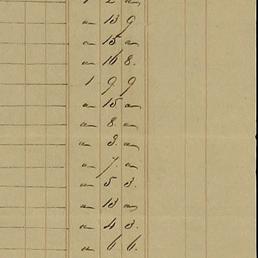 1 2 „
„ 13 9
„ 15 „
„ 16 8.
1 9 9
„ 15 „
„ 8. „
„ 3. „
„ 7. „
„ 5 3.
„ 13 „
„ 4 3.
„ 6 6.